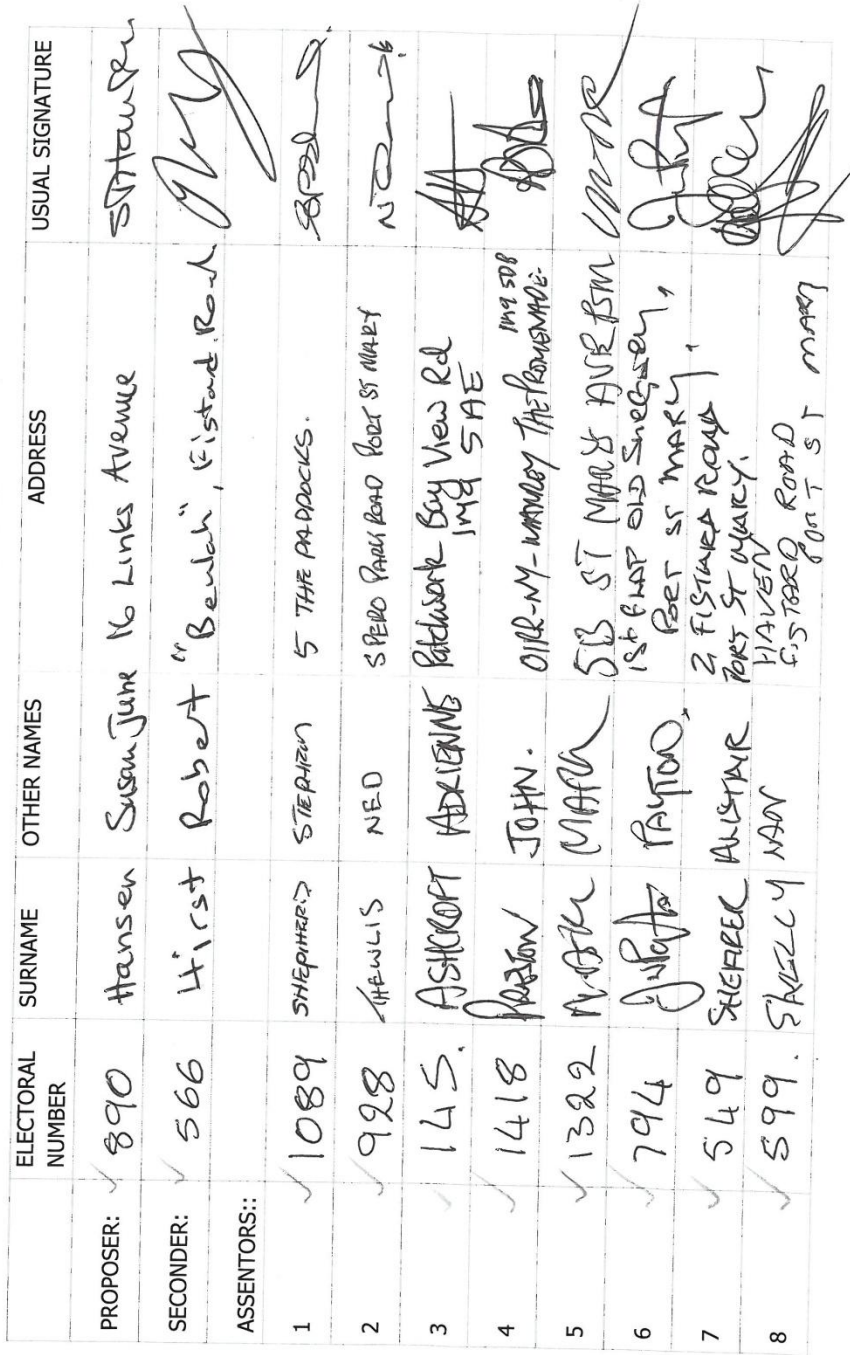 ELECTORAL NUMBER SURNAME OTHER NAMES ADDRESS USUAL SIGNATURE
PROPOSER: 890 Hansen Susan June 16 Links Avenue
SECONDER: 566 Hirst Robert "Beulah", Fistard Road
ASSENTORS::
1 1089 SHEPHERD STEPHEN 5 THE PADDOCKS.
2 928 THEWLIS NED SPERO PARK ROAD PORT ST MARY
3 145. ASHCROFT ADRIENNE Patchwork Bay View Rd
IM9 5AE
4 1418 PRESTON JOHN. THE PROMENADE
IM9 5DB
5 1322 MARK 5B ST MARYS AVE PSM
6 794 PAYTON, 1st FLAT OLD
PORT ST MARY,
7 549 ALISTAIR 2 FISTARD ROAD
PORT ST MARY.
8 599. SKELLY HAVEN
FISTARD ROAD
PORT ST MARY